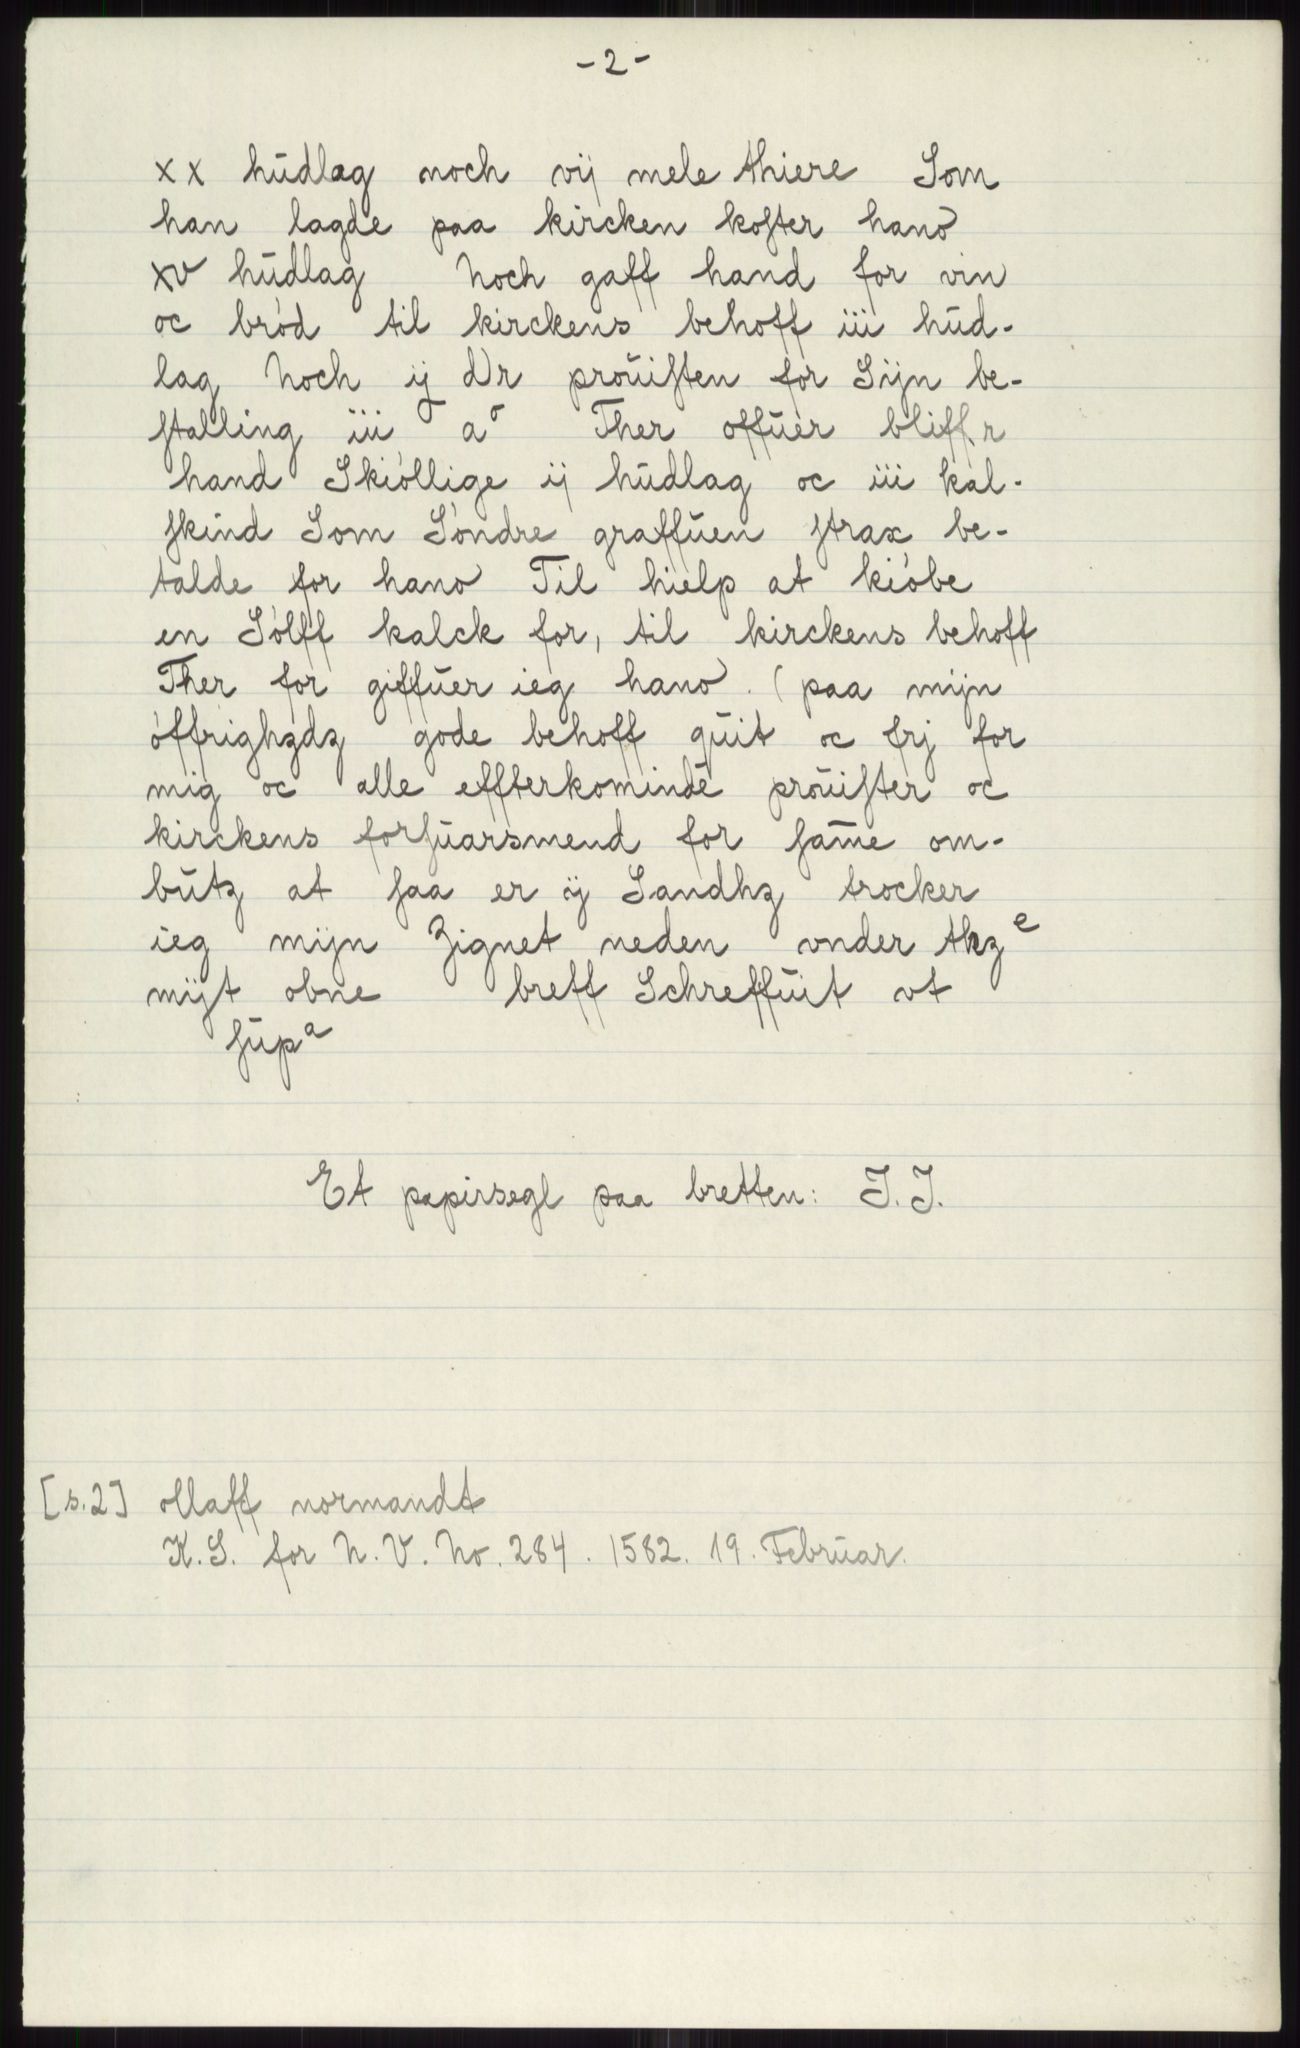 - 2 -
xx hūdlag noch vij mele thiere Som
han lagde paa kircken koster hano
xv hūdlag Noch gaff hand for vin
oc bród til kirckens behoff iii hūd-
lag Noch ij dr proūisten for Sijn be-
stalling iii a Ther offūer bliffr
hand Skióllige ij hūdlag oc iii kal-
skind Som Sóndre graffūen strax be-
talde for hano Til hielp at kióbe
en Sólff kalck for, til kirckens behoff
Ther for giffūer ieg hano. (paa mijn
óffrighzdz gode behoff qūit oc frj for
mig oc alle effterkominde proūister oc
kirckens forsūarsmend for same om-
būtz at saa er ij Sandhz trocker
ieg mijn Zignet neden vnder thz e
mijt obne breff Schreffūit vt
sūp a
Et papirsegl paa bretten: J. J.
[s.2] ollaff normandt
K. S. for N. V. No. 284. 1582. 19. Febrūar.